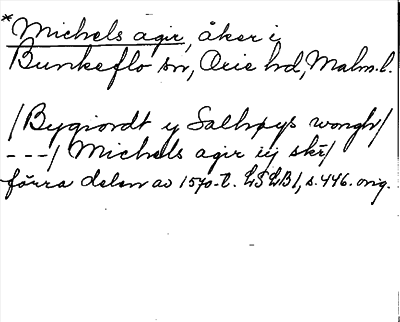 *Michels agir, åker i
Bunkeflo sn, Oxie hd, Malm. l.
/Bygiordt y Salhøys wongh/
---/ Michels agir iij skr/
förra delen av 1570-t. LSLB1, s. 446. orig.